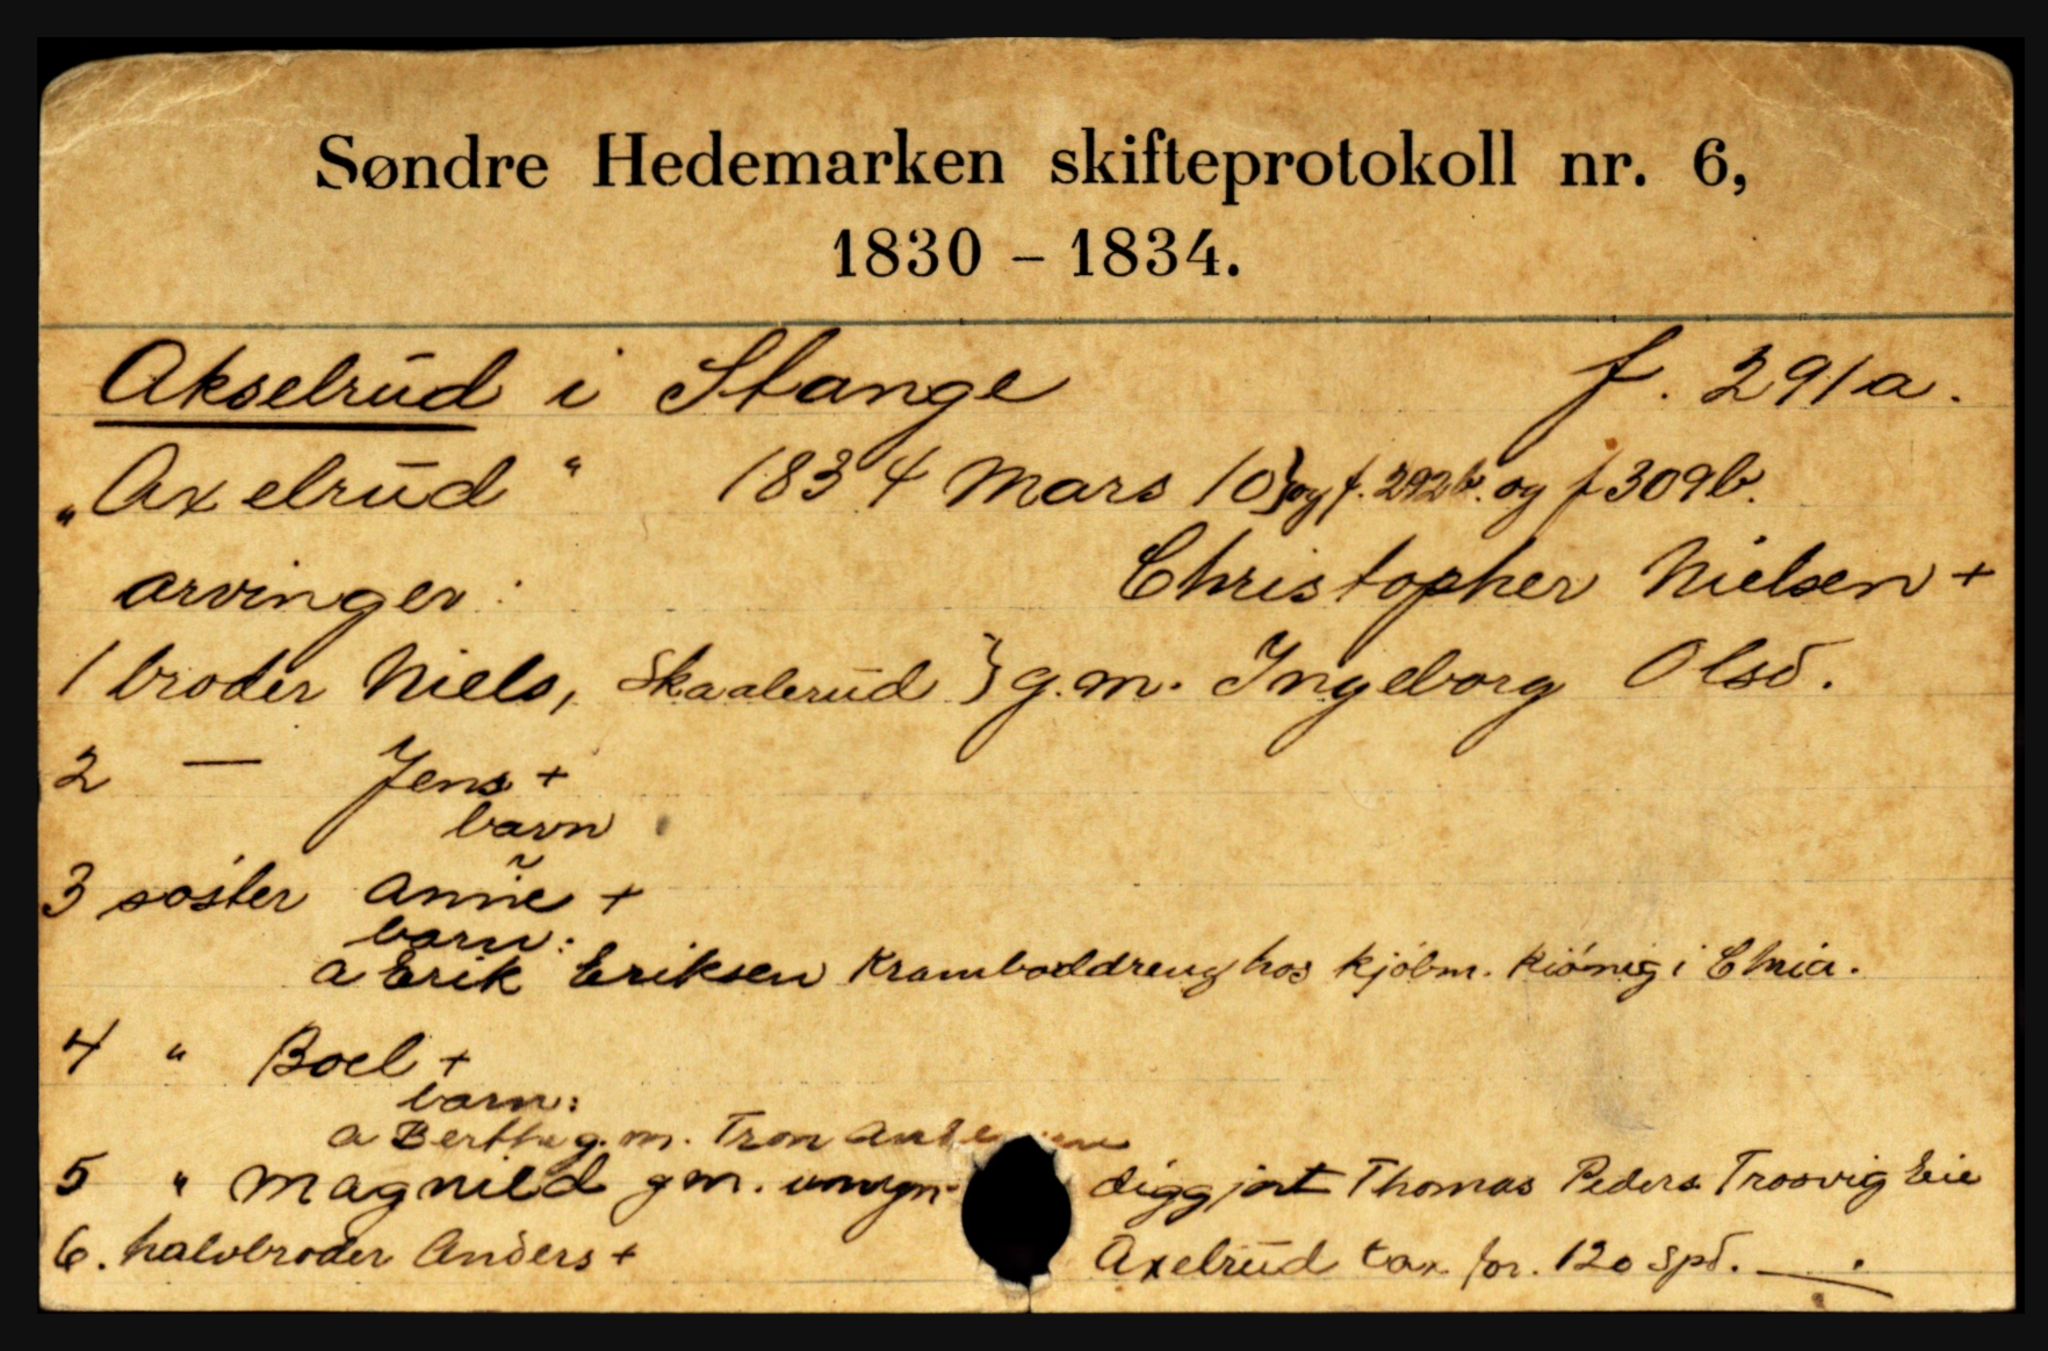 Søndre Hedemarken skifteprotokoll nr. 6,
1830 – 1834.
Akselrud i Stange f. 291a.
„Axelrud“ 1834 Mars 10} og f. 292b. og f 309b.
arvinger: Christopher Nielsen +
1 broder Niels, Skaalerud } g.m. Ingeborg Olsd.
2 — Jens +
barn
3 søster Anne +
barn:
a Erik Eriksen Kramboddreng hos kjøbm. Kiønig i Chria.
4 " Boel +
barn:
a Berthe g.m. Tron
5 " Magnild gm. umyndiggjort Thomas Peders Trosvig Eie
6. halvbroder Anders + Axelrud tax for. 120 Spd.